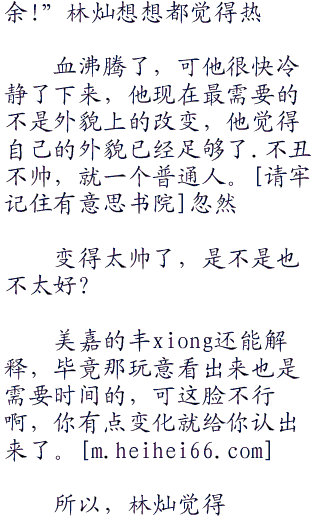 余!”林灿想想都觉得热
血沸腾了，可他很快冷
静了下来，他现在最需要的
不是外貌上的改变，他觉得
自己的外貌已经足够了.不丑
不帅，就一个普通人。[请牢
记住有意思书院]忽然
变得太帅了，是不是也
不太好？
美嘉的丰xiong还能解
释，毕竟那玩意看出来也是
需要时间的，可这脸不行
啊，你有点变化就给你认出
来了。[m.heihei66.com]
所以，林灿觉得